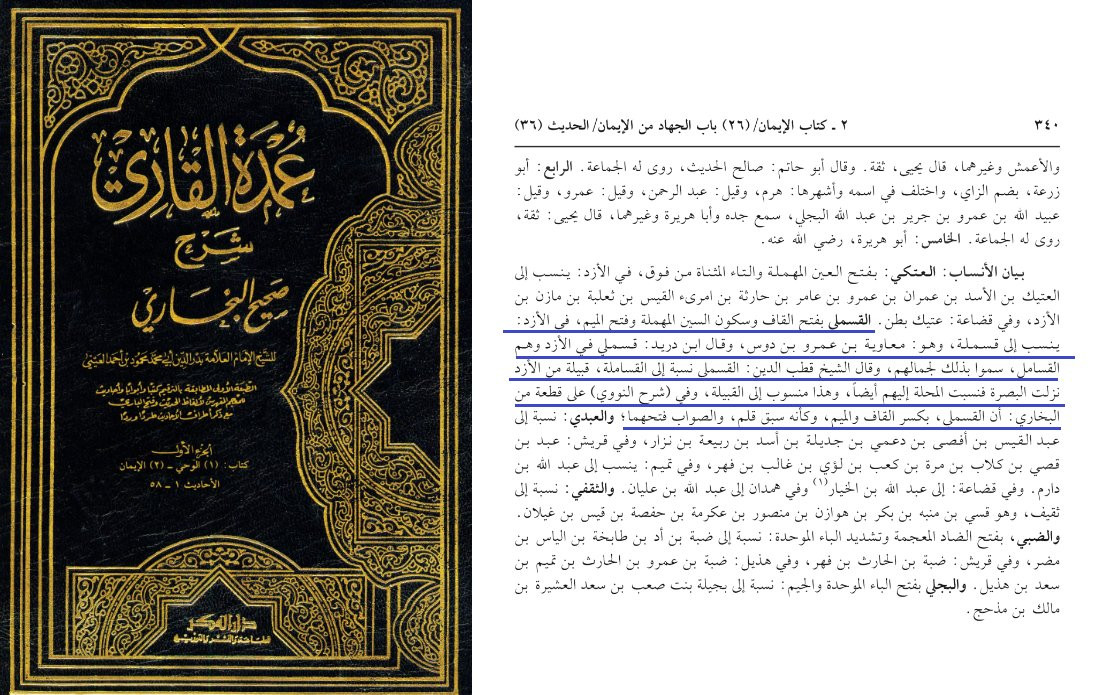 عمدة القاري
شرح
صحيح البخاري
للشيخ الإمام العلامة بدر الدين أبي محمد محمود بن أحمد العيني
الجزء الأول
كتاب: (١) الوحي - (٢) الإيمان
الأحاديث ١ - ٥٨
دار الفكر
للطباعة والنشر والتوزيع
٣٤٠
٢ ـ كتاب الإيمان/ (٢٦) باب الجهاد من الإيمان/ الحديث (٣٦)
والأعمش وغيرهما، قال يحيى، ثقة. وقال أبو حاتم: صالح الحديث، روى له الجماعة. الرابع: أبو
زرعة، بضم الزاي، واختلف في اسمه وأشهرها: هرم، وقيل: عبد الرحمن، وقيل: عمرو، وقيل:
عبيد الله بن عمرو بن جرير بن عبد الله البجلي، سمع جده وأبا هريرة وغيرهما، قال يحيى: ثقة،
روى له الجماعة. الخامس: أبو هريرة، رضي الله عنه.
بيان الأنساب: العتكي: بفتح العين المهملة والتاء المثناة من فوق، في الأزد: ينسب إلى
العتيك بن الأسد بن عمران بن عمرو بن عامر بن حارثة بن امرىء القيس بن ثعلبة بن مازن بن
الأزد، وفي قضاعة: عتيك بطن. القسملي بفتح القاف وسكون السين المهملة وفتح الميم، في الأزد:
ينسب إلى قسملة، وهو: معاوية بن عمرو بن دوس، وقال ابن دريد: قسملي في الأزد وهم
القسامل، سموا بذلك لجمالهم، وقال الشيخ قطب الدين: القسملي نسبة إلى القساملة، قبيلة من الأزد
نزلت البصرة فنسبت المحلة إليهم أيضاً، وهذا منسوب إلى القبيلة، وفي (شرح النووي) على قطعة من
البخاري: أن القسملي، بكسر القاف والميم، وكأنه سبق قلم، والصواب فتحهما؛ والعبدي: نسبة إلى
عبد القيس بن أفصى بن دعمي بن جديلة بن أسد بن ربيعة بن نزار، وفي قريش: عبد بن
قصي بن كلاب بن مرة بن كعب بن لؤي بن غالب بن فهر، وفي تميم: ينسب إلى عبد الله بن
دارم. وفي قضاعة: إلى عبد الله بن الخيار(١) وفي همدان إلى عبد الله بن عليان. والثقفي: نسبة إلى
ثقيف، وهو قسي بن منبه بن بكر بن هوازن بن منصور بن عكرمة بن حفصة بن قيس بن غيلان.
والضبي، بفتح الضاد المعجمة وتشديد الباء الموحدة: نسبة إلى ضبة بن أد بن طابخة بن الياس بن
مضر، وفي قريش: ضبة بن الحارث بن فهر، وفي هذيل: ضبة بن عمرو بن الحارث بن تميم بن
سعد بن هذيل. والبجلي بفتح الباء الموحدة والجيم: نسبة إلى بجيلة بنت صعب بن سعد العشيرة بن
مالك بن مذحج.